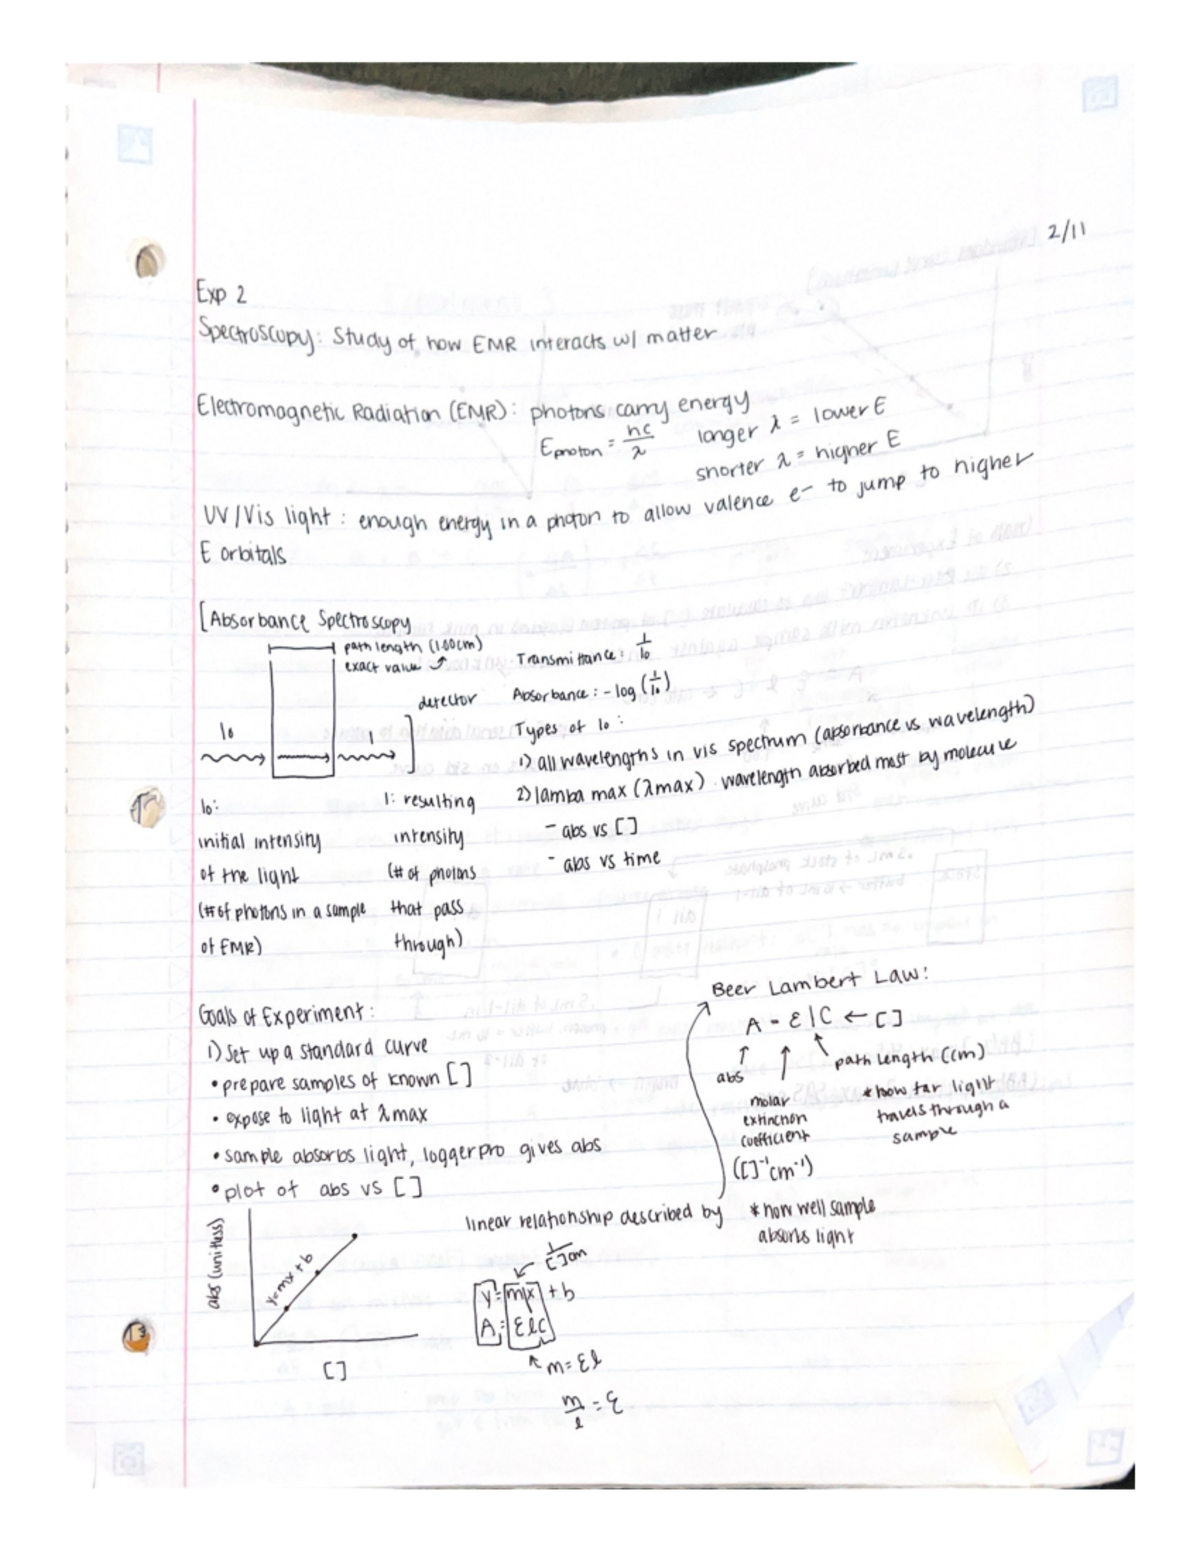 2/11
Exp 2
Spectroscopy: Study of how EMR interacts w/ matter
Electromagnetic Radiation (EMR): photons carry energy
Ephoton = hc/λ
longer λ = lower E
shorter λ = higher E
UV/Vis light: enough energy in a photon to allow valence e- to jump to higher
E orbitals
[Absorbance Spectroscopy
path length (1.00cm)
exact value
detector
I0
I
Transmittance: I/I0
Absorbance: -log(I/I0)
Types of I0:
1) all wavelengths in vis spectrum (absorbance vs wavelength)
2) lamba max (λmax). wavelength absorbed most by molecule
- abs vs []
- abs vs time
I0:
initial intensity
of the light
(# of photons in a sample
of EMR)
I: resulting
intensity
(# of photons
that pass
through)
Goals of Experiment:
1) Set up a standard curve
• prepare samples of known []
• expose to light at λmax
• sample absorbs light, loggerpro gives abs
• plot of abs vs []
Beer Lambert Law:
A = ε l C ← []
abs
molar
extinction
coefficient
([]⁻¹cm⁻¹)
* how well sample
absorbs light
path length (cm)
* how far light
travels through a
sample
linear relationship described by
abs (unitless)
y=mx+b
[]
1/[]cm
y=mx+b
A=εlc
m=εl
m/l=ε